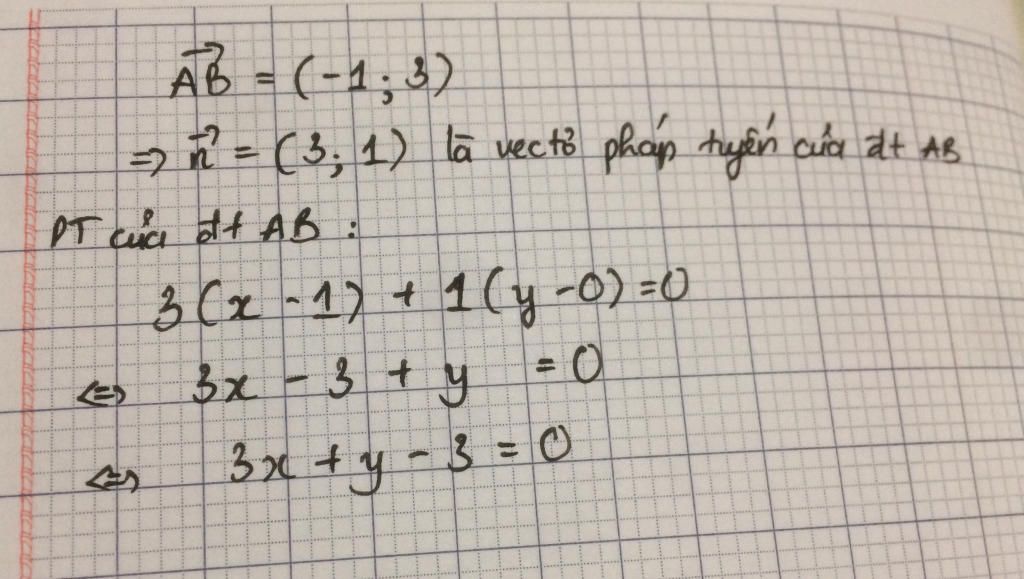 $\overrightarrow{AB} = (-1; 3)$
$\Rightarrow \overrightarrow{n} = (3; 1)$ là vectơ pháp tuyến của đt AB
PT của đt AB :
$3(x - 1) + 1(y - 0) = 0$
$\Leftrightarrow 3x - 3 + y = 0$
$\Leftrightarrow 3x + y - 3 = 0$